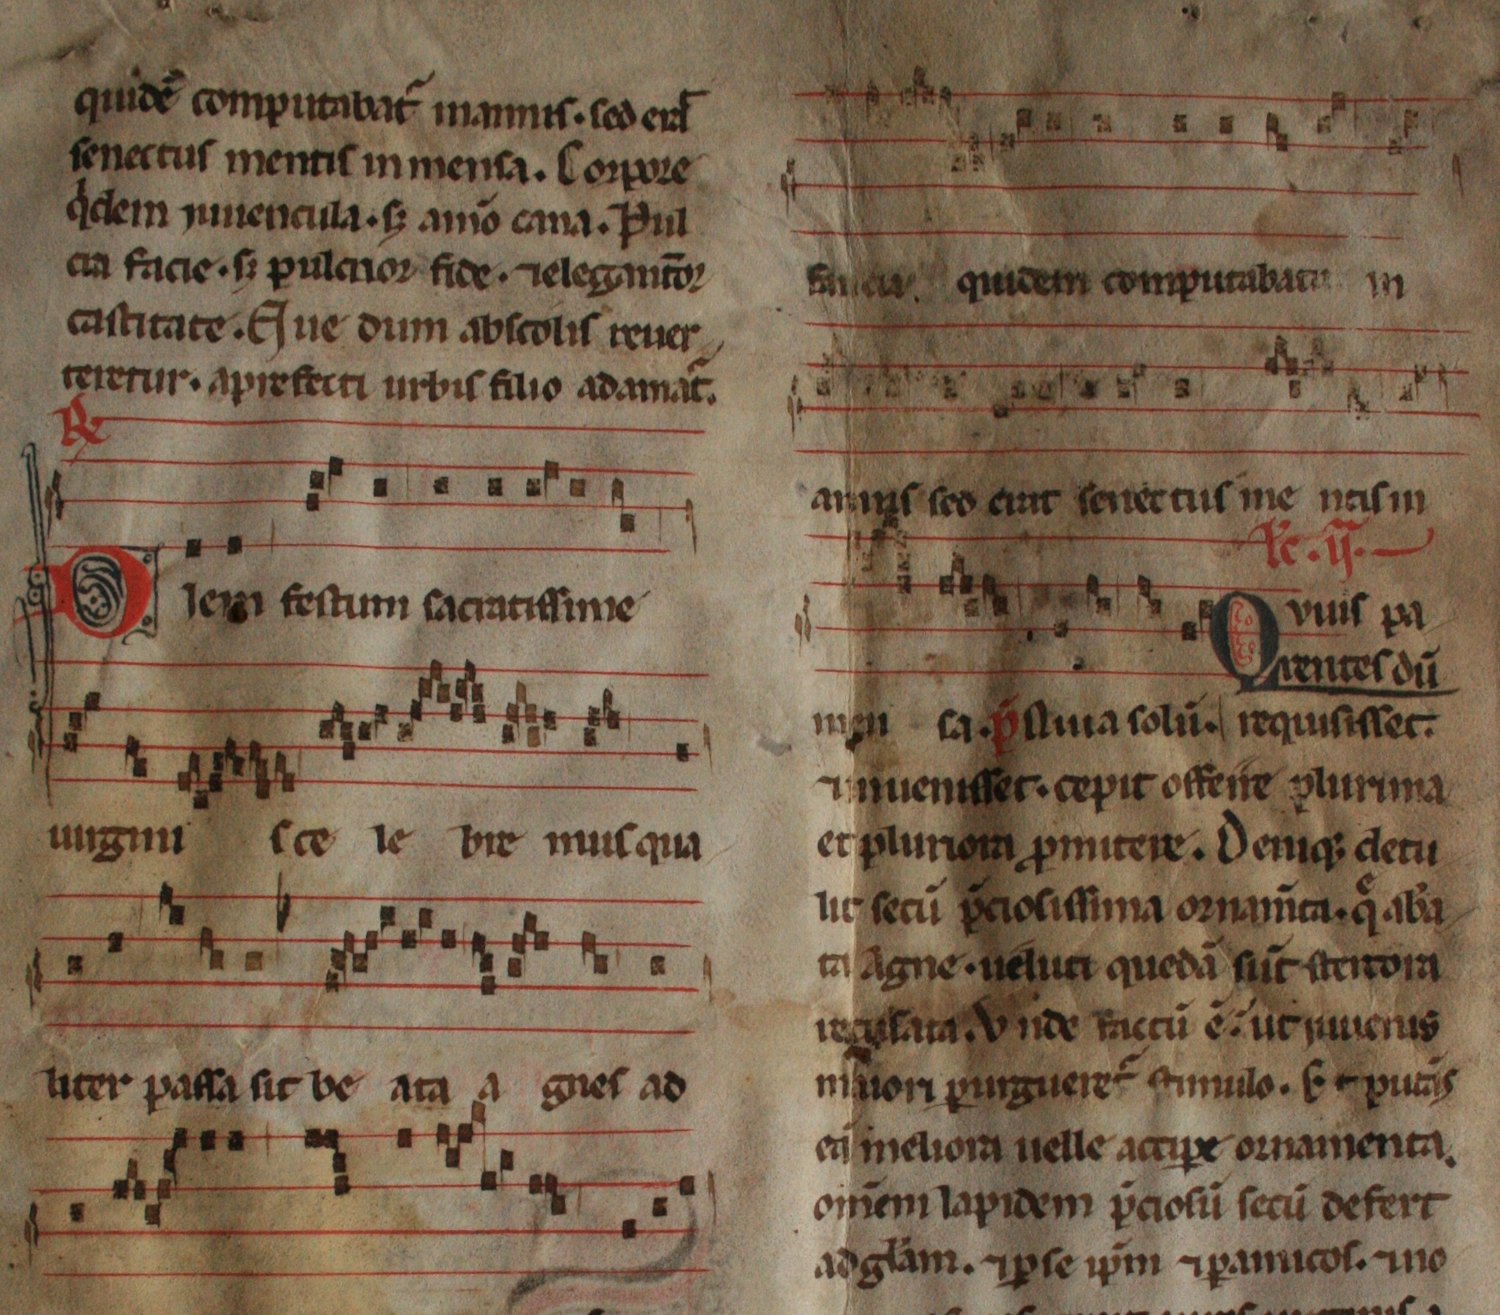 quidē computabat᷑ in annis · sed erat
senectus mentis in mensa . Corpore
q̇dem iuuencula · sꝫ aīo cana . Pul
cra facie · sꝫ pulcrior fide · ⁊ elegantior
castitate . Que dum abscolis reuer
teretur · aprefecti urbis filio adamat᷑ .
℟
Diem festum sacratissime
uirgini s ce le bre musqua
liter passa sit be ata a gnes ad
fancia quidem computabatur in
annis sed erat senectus me ntis in
Lc . ij .
Quuis pa
rentes dū
men sa . p̄stina solū .
requisisset .
⁊ inuenisset · cepit offerre plurima
et pluriora ꝓmitere . Deniqꝫ detu
lit secū p̄ciosissima ornam̄ta · q̄ aba
ta Agne · ueluti quedā sūt stercora
recusata . Vnde factū ē · ut iuuenis
maiori purgueret᷑ stimulo . ⁊ putās
eā meliora uelle accipe ornamenta .
om̄em lapidem p̄ciosū secū defert
ad gl̄am . ⁊ ipse ip̄m ⁊ p amicos . ⁊ no